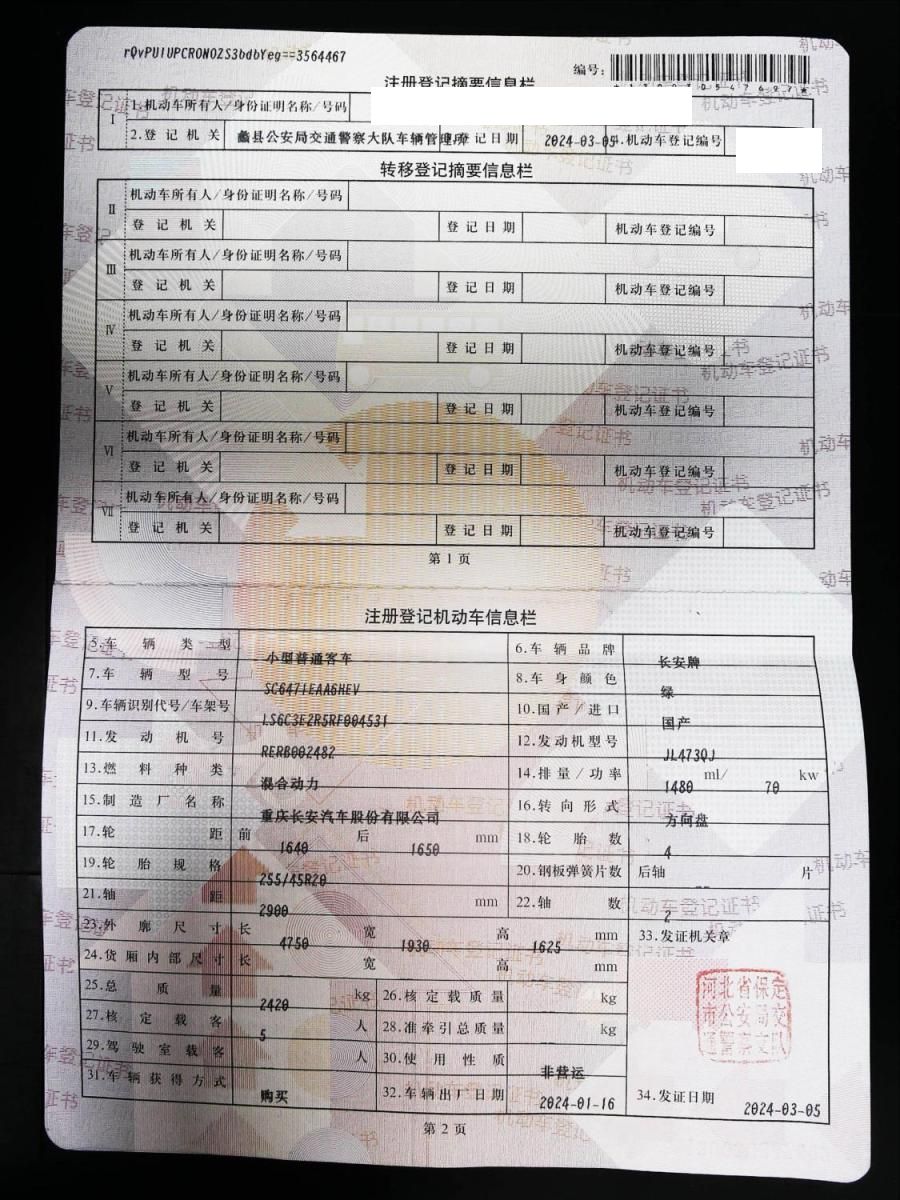 rQvPU1UPCRONO2S3bdbYeg==3564467
编号:
注册登记摘要信息栏
I
1.机动车所有人/身份证明名称/号码
2.登记机关 蠡县公安局交通警察大队车辆管理所 登记日期 2024-03-05 机动车登记编号
转移登记摘要信息栏
II
机动车所有人/身份证明名称/号码
登记机关 登记日期 机动车登记编号
III
机动车所有人/身份证明名称/号码
登记机关 登记日期 机动车登记编号
IV
机动车所有人/身份证明名称/号码
登记机关 登记日期 机动车登记编号
V
机动车所有人/身份证明名称/号码
登记机关 登记日期 机动车登记编号
VI
机动车所有人/身份证明名称/号码
登记机关 登记日期 机动车登记编号
VII
机动车所有人/身份证明名称/号码
登记机关 登记日期 机动车登记编号
第1页
注册登记机动车信息栏
5.车辆类型 小型普通客车 6.车辆品牌 长安牌
7.车辆型号 SC6471EAA6HEV 8.车身颜色 绿
9.车辆识别代号/车架号 LS6C3E2R5RF004531 10.国产/进口 国产
11.发动机号 RERB002482 12.发动机型号 JL473QJ
13.燃料种类 混合动力 14.排量/功率 1480 ml/ 70 kw
15.制造厂名称 重庆长安汽车股份有限公司 16.转向形式 方向盘
17.轮距 前 1640 后 1650 mm 18.轮胎数 4
19.轮胎规格 255/45R20 20.钢板弹簧片数 后轴 -- 片
21.轴距 2900 mm 22.轴数 2
23.外廓尺寸 长 4750 宽 1930 高 1625 mm 33.发证机关章
24.货厢内部尺寸 长 宽 高 mm
25.总质量 2420 kg 26.核定载质量 kg
27.核定载客 5 人 28.准牵引总质量 kg
29.驾驶室载客 人 30.使用性质 非营运
31.车辆获得方式 购买 32.车辆出厂日期 2024-01-16 34.发证日期 2024-03-05
河北省保定
市公安局交
通警察支队
第2页